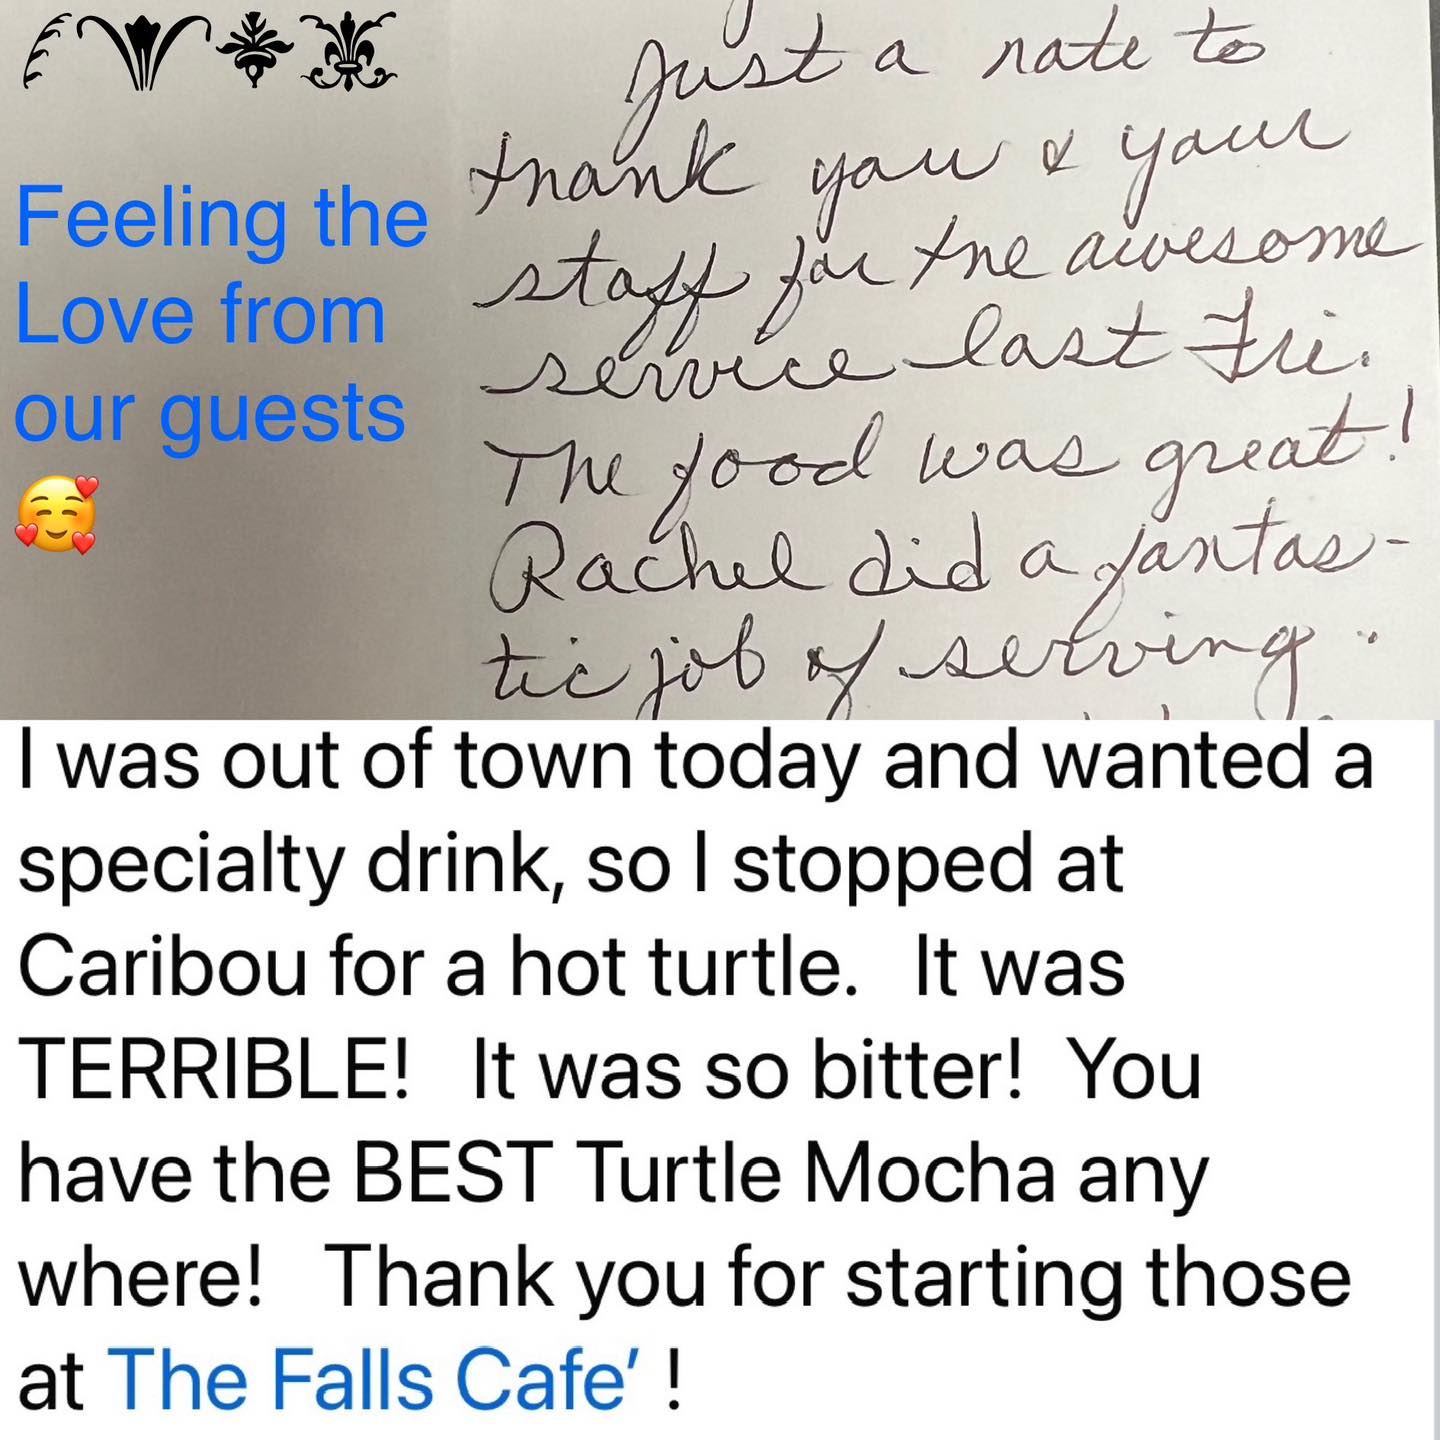 Feeling the
Love from
our guests
🥰
Just a note to
thank you & your
staff for the awesome
service last Fri.
The food was great!
Rachel did a fantas-
tic job of serving.
I was out of town today and wanted a
specialty drink, so I stopped at
Caribou for a hot turtle. It was
TERRIBLE! It was so bitter! You
have the BEST Turtle Mocha any
where! Thank you for starting those
at The Falls Cafe’ !